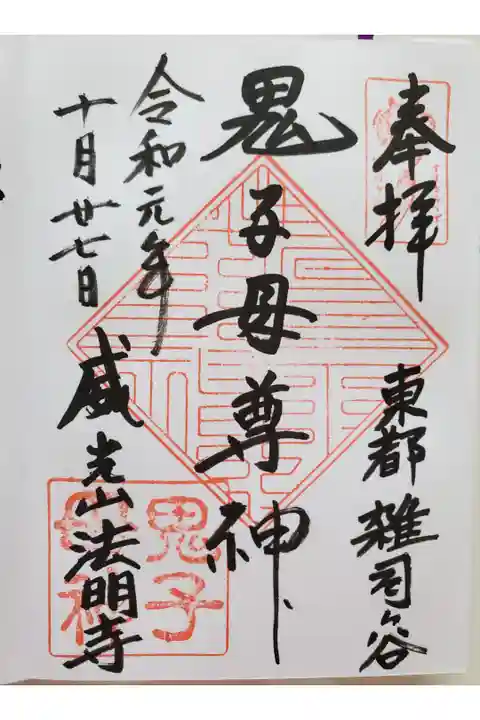 奉拝
東都 雑司ヶ谷
鬼子母尊神
令和元年
十月廿七日
威光山法明寺
鬼子母神